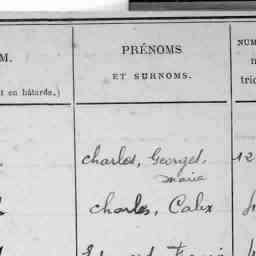 M. PRÉNOMS NUM
ET SURNOMS.
t en bâtarde.) tric
charles, Georges, 12
marie
charles, Calix